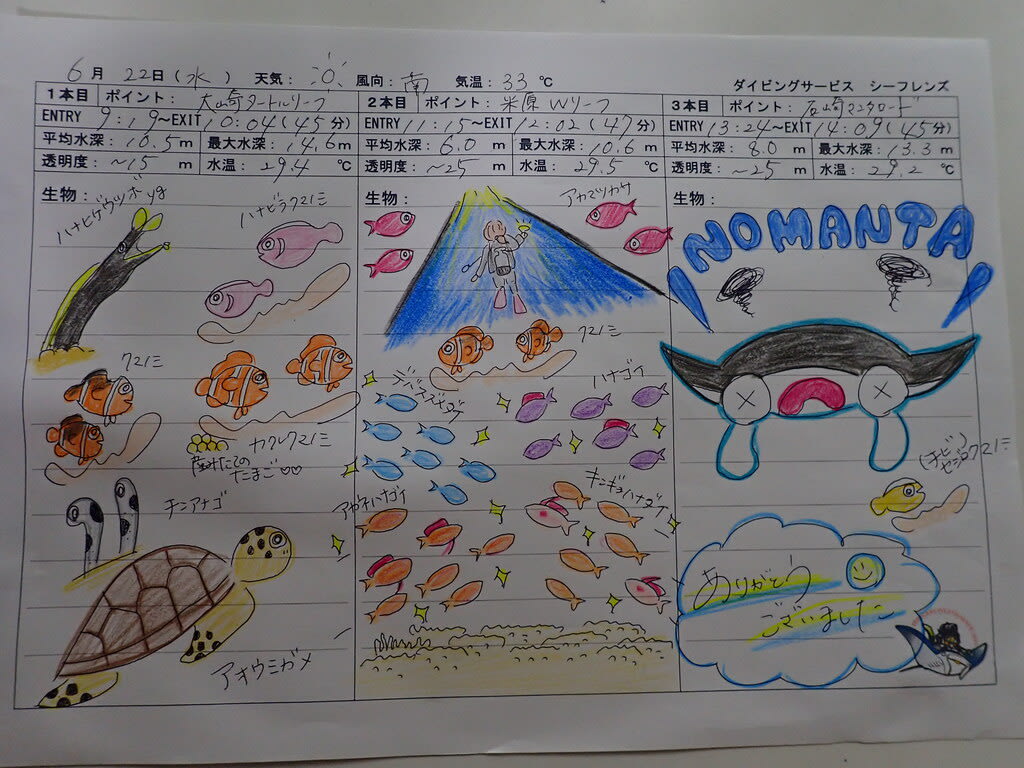 6月 22日(水) 天気: 風向: 南 気温: 33 ℃
ダイビングサービス シーフレンズ
1本目 ポイント: 大崎タートルリーフ
ENTRY 9:19~EXIT 10:04(45分)
平均水深: 10.5 m 最大水深: 14.6 m
透明度: ~15 m 水温: 29.4 ℃
生物:
ハナヒゲウツボyg
ハナビラクマノミ
クマノミ
カクレクマノミ
産みたての
たまご♡♡
チンアナゴ
アオウミガメ
2本目 ポイント: 米原Wリーフ
ENTRY 11:15~EXIT 12:02(47分)
平均水深: 6.0 m 最大水深: 10.6 m
透明度: ~25 m 水温: 29.5 ℃
生物:
アカマツカサ
クマノミ
デバスズメダイ
ハナゴイ
アカネハナゴイ
キンギョハナダイ
3本目 ポイント: 石崎マンタロード
ENTRY 13:24~EXIT 14:09(45分)
平均水深: 8.0 m 最大水深: 13.3 m
透明度: ~25 m 水温: 29.2 ℃
生物:
NOMANTA
(チビ)
セジロクマノミ
ありがとう
ございました